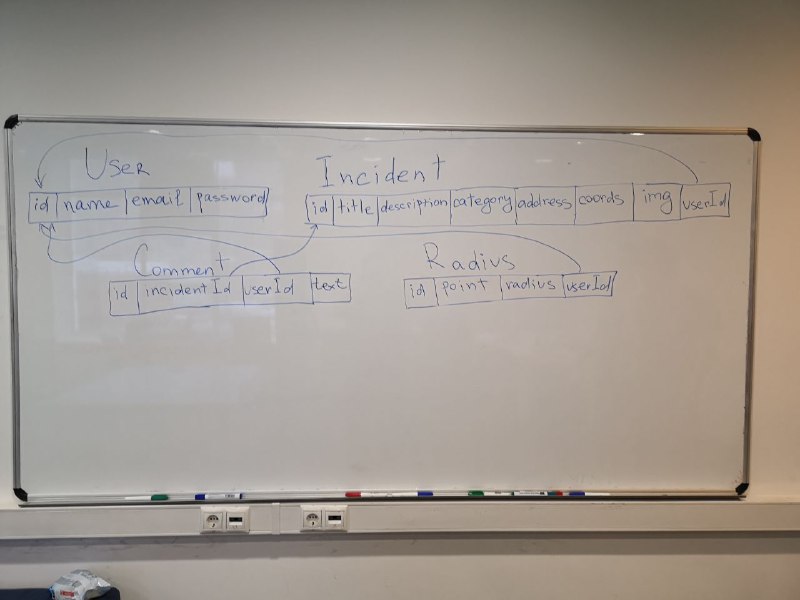 User
id name email password
Incident
id title description category address coords img userId
Comment
id incidentId userId text
Radius
id point radius userId